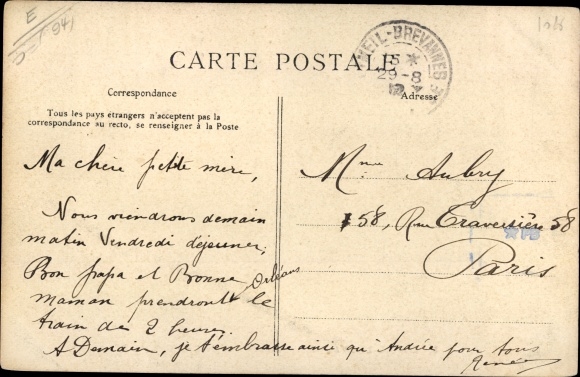 E
941
1068
CARTE POSTALE
Correspondance
Tous les pays étrangers n'acceptent pas la
correspondance au recto, se renseigner à la Poste
Ma chère petite mère,
Nous viendrons demain
matin Vendredi déjeuner;
Bon papa et Bonne
maman prendront le
Orléans
train de 2 heures.
A Demain, je t'embrasse ainsi qu'Andrée pour tous
Renée
LIMEIL-BREVANNES
29-8
Adresse
Mme Aubry
58, Rue Traversière 58
Paris